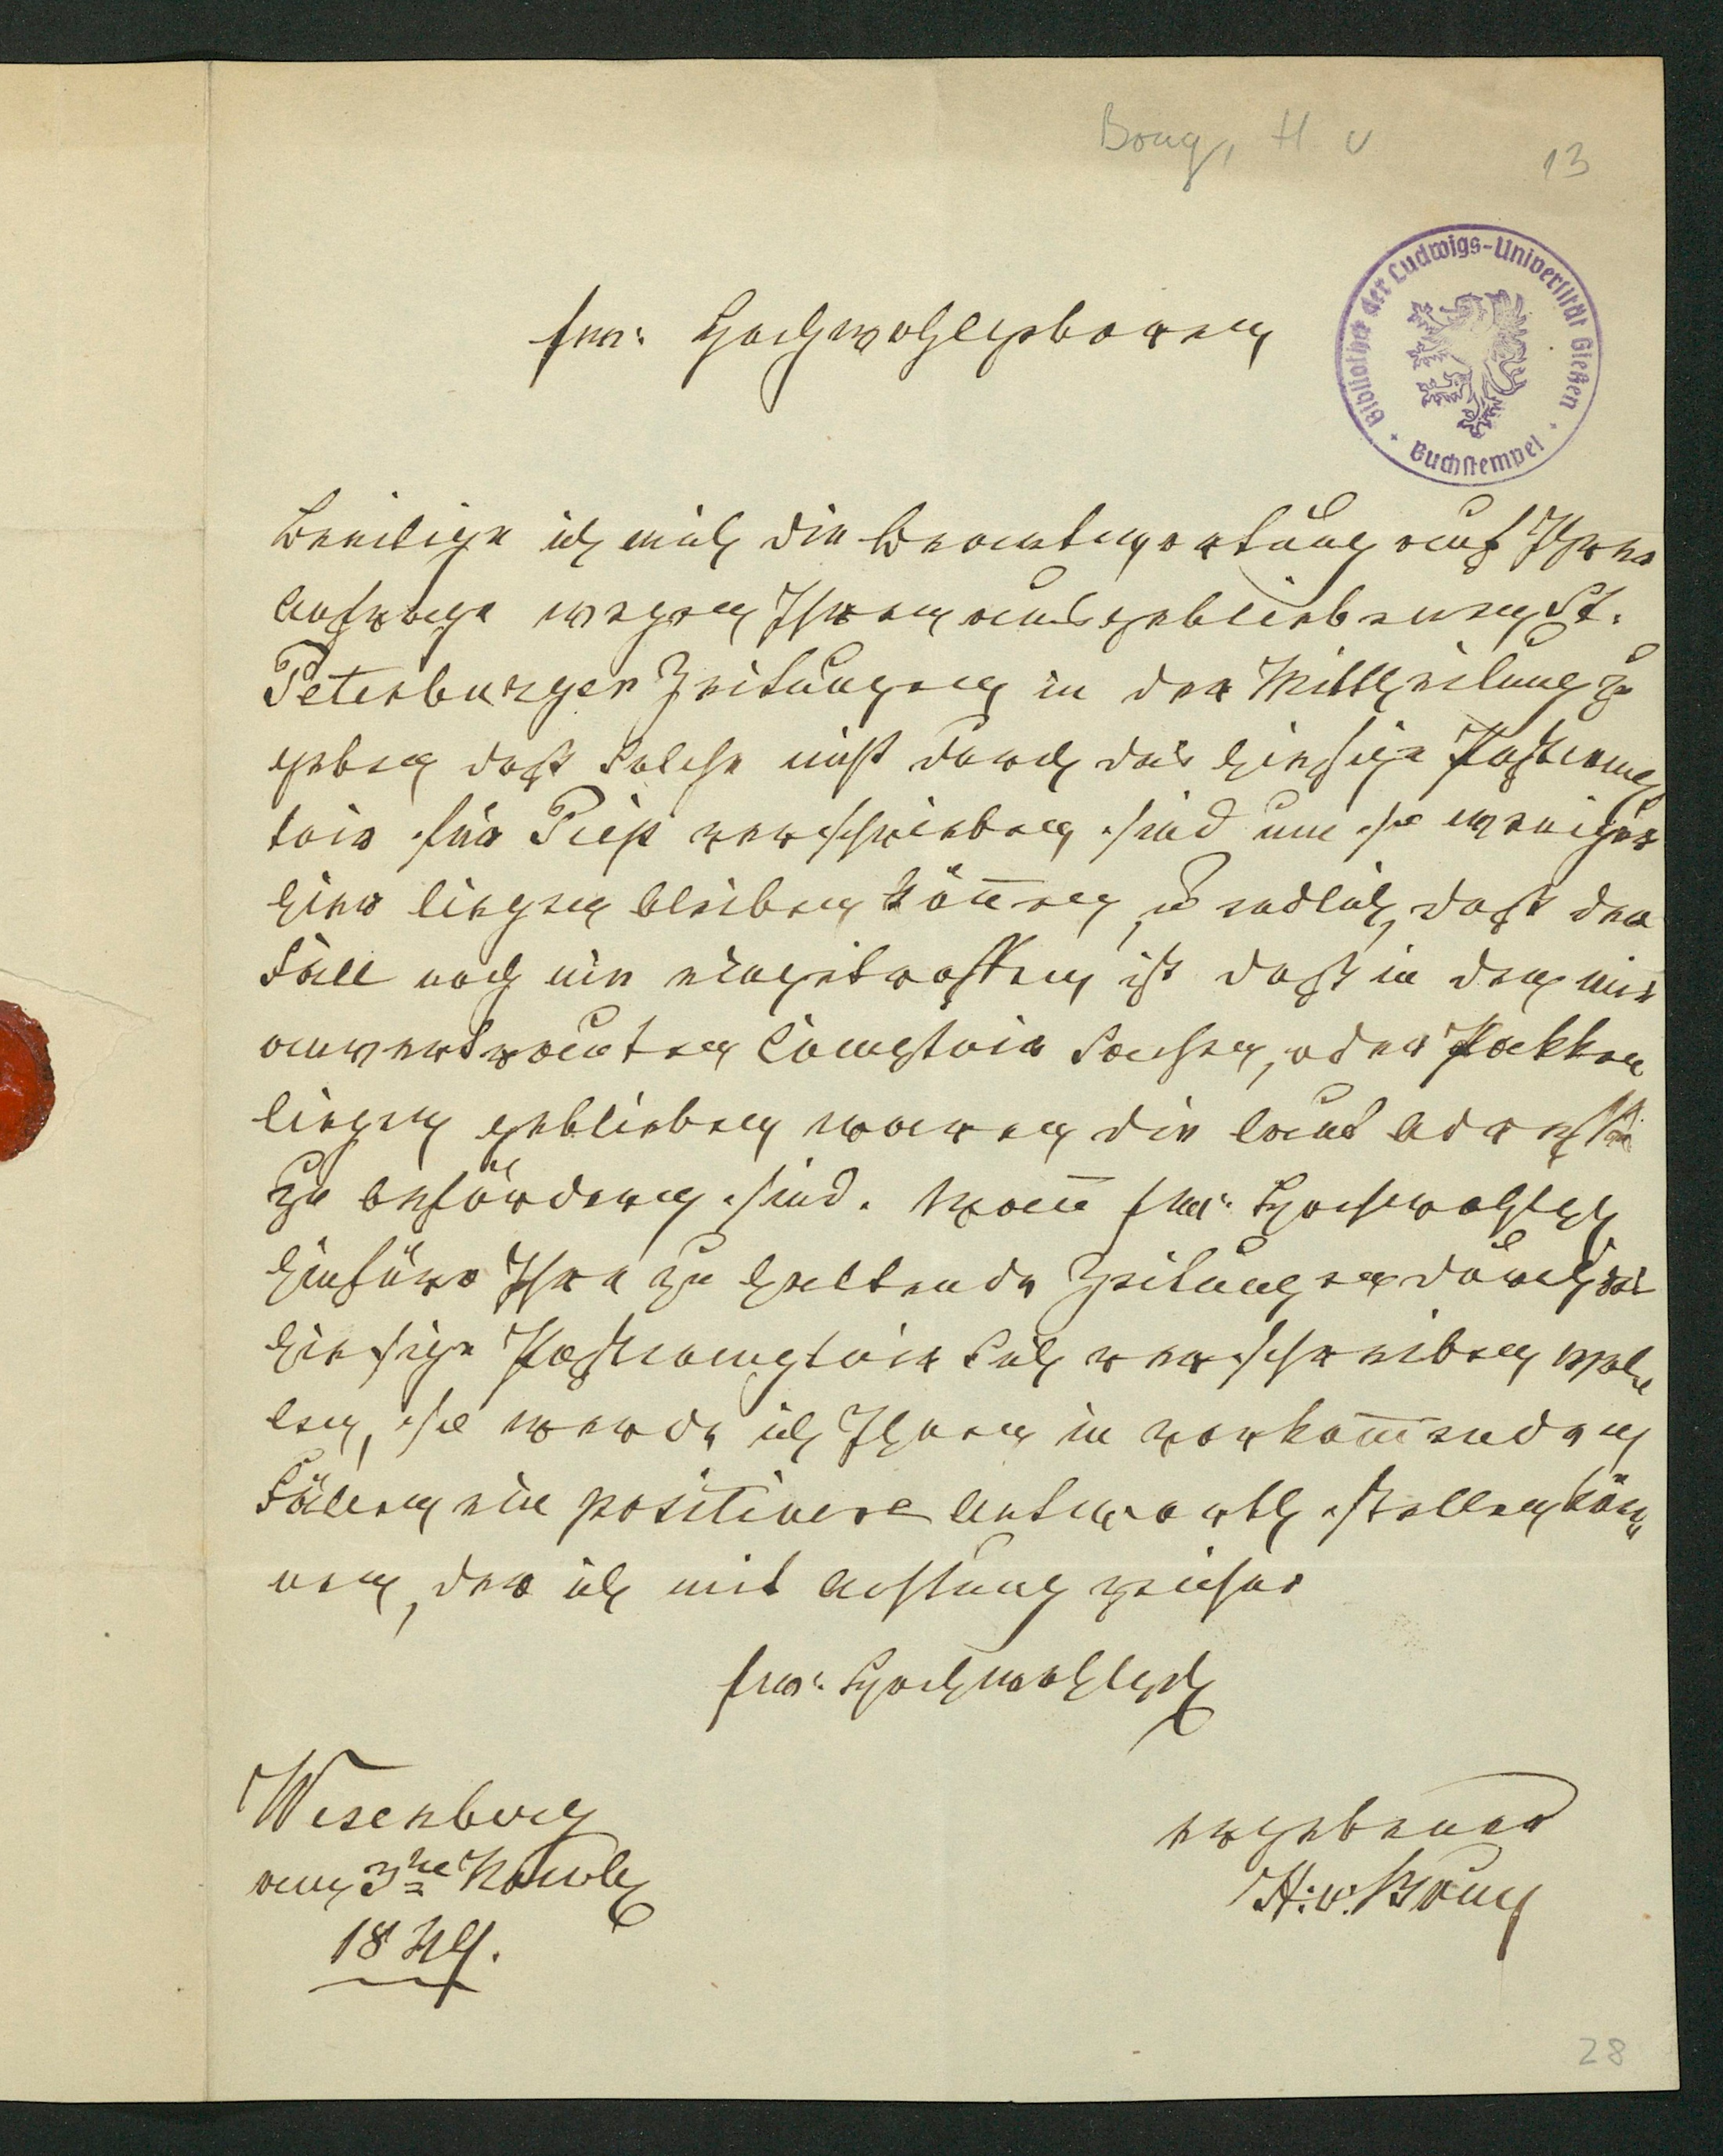 Boug, H v
13
Bibliothek der Ludwigs-Universität Gießen
Buchstempel
Ew: Hochwohlgeboren
beeilige ich mich die Beantwortung auf Ihre
Anfrage wegen Ihren ausgebliebenen St.
Petersburger Zeitungen in der Mittheilung zu
geben daß Solche nicht durch das hiesige Postcomp
toir für Piep verschrieben sind um so weniger
hier liegen bleiben können, u endlich, daß der
Fall noch nie eingetroffen ist daß in dem mir
anvertrauten Comptoir Sachen, oder Pakken
liegen geblieben waren die laut Adresse
zu befördern sind. Wann Ew: Hochwohlgb
hinfüro Ihre zu haltende Zeitungen durch das
hiesige Postcomptoir Sich verschreiben wol
len, so werde ich Ihnen in vorkommenden
Fällen eine positivere Antworth stellen kön
nen, der ich mit Achtung zeichne
Ew: Hochwohlgb
Wesenberg
am 3te Novbr
18
ergebener
H: v: Boug
28